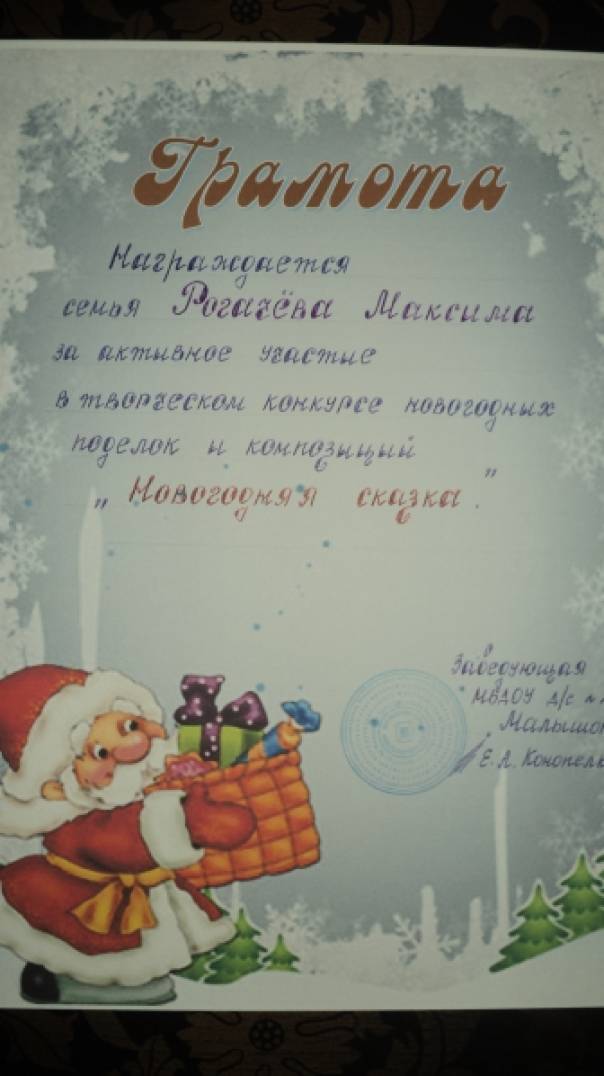 Грамота
Награждается
семья Рогачёва Максима
за активное участие
в творческом конкурсе новогодных
поделок и композиций
„ Новогодняя сказка."
Заведующая
МБДОУ д/с
Е.А.